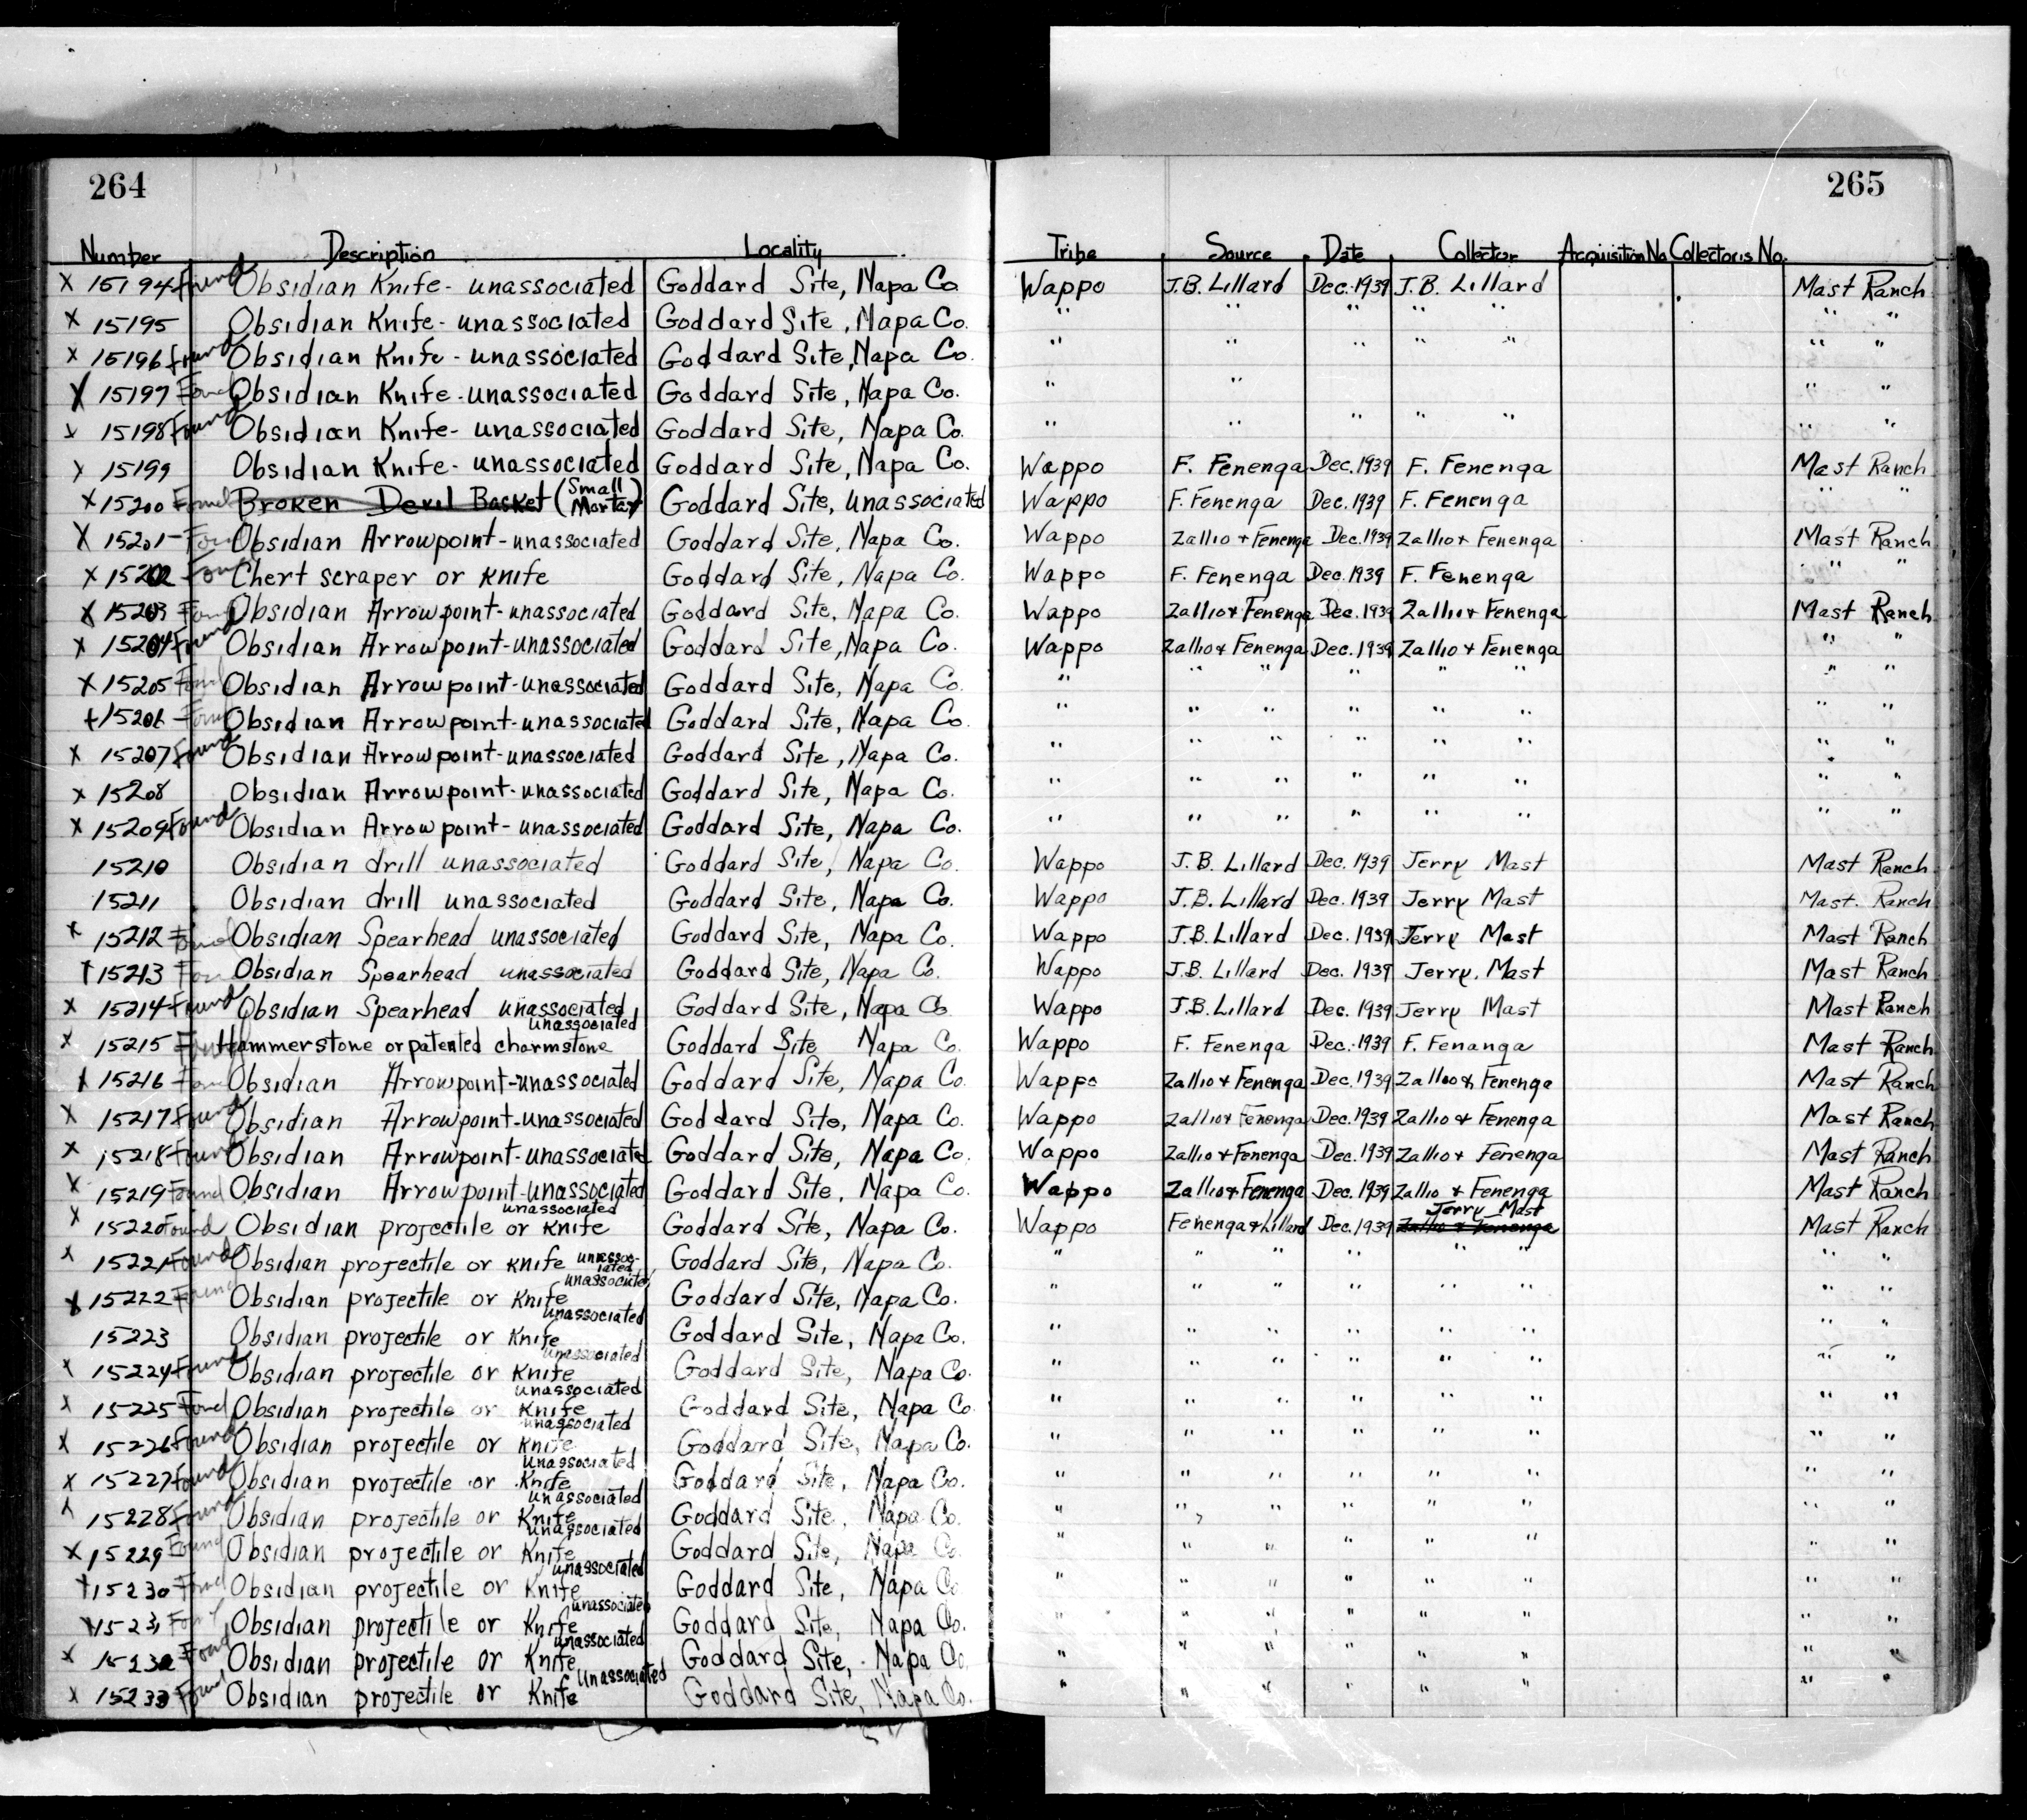 264
Number Description Locality
X 15194 Found Obsidian Knife - unassociated Goddard Site, Napa Co.
X 15195 Obsidian Knife - unassociated Goddard Site, Napa Co.
X 15196 found Obsidian Knife - unassociated Goddard Site, Napa Co.
X 15197 Found Obsidian Knife - unassociated Goddard Site, Napa Co.
X 15198 Found Obsidian Knife - unassociated Goddard Site, Napa Co.
X 15199 Obsidian Knife - unassociated Goddard Site, Napa Co.
X 15200 Found Broken Devil Basket (Small Mortar) Goddard Site, unassociated
X 15201 - Found Obsidian Arrowpoint - unassociated Goddard Site, Napa Co.
X 15202 - Found Chert scraper or Knife Goddard Site, Napa Co.
X 15203 Found Obsidian Arrowpoint - unassociated Goddard Site, Napa Co.
X 15204 Found Obsidian Arrowpoint - unassociated Goddard Site, Napa Co.
X 15205 Found Obsidian Arrowpoint - unassociated Goddard Site, Napa Co.
X 15206 - Found Obsidian Arrowpoint - unassociated Goddard Site, Napa Co.
X 15207 Found Obsidian Arrowpoint - unassociated Goddard Site, Napa Co.
X 15208 Obsidian Arrowpoint - unassociated Goddard Site, Napa Co.
X 15209 Found Obsidian Arrowpoint - unassociated Goddard Site, Napa Co.
15210 Obsidian drill unassociated Goddard Site, Napa Co.
15211 Obsidian drill unassociated Goddard Site, Napa Co.
X 15212 Found Obsidian Spearhead unassociated Goddard Site, Napa Co.
X 15213 Found Obsidian Spearhead unassociated Goddard Site, Napa Co.
X 15214 Found Obsidian Spearhead unassociated Goddard Site, Napa Co
X 15215 Found Hammerstone or patented charmstone unassociated Goddard Site Napa Co.
X 15216 Found Obsidian Arrowpoint - unassociated Goddard Site, Napa Co.
X 15217 Found Obsidian Arrowpoint - unassociated Goddard Site, Napa Co.
X 15218 Found Obsidian Arrowpoint - unassociated Goddard Site, Napa Co.
X 15219 Found Obsidian Arrowpoint - unassociated Goddard Site, Napa Co.
X 15220 Found Obsidian projectile or Knife unassociated Goddard Site, Napa Co.
X 15221 Found Obsidian projectile or Knife unassociated Goddard Site, Napa Co.
X 15222 Found Obsidian projectile or Knife unassociated Goddard Site, Napa Co.
15223 Obsidian projectile or Knife unassociated Goddard Site, Napa Co.
X 15224 Found Obsidian projectile or Knife unassociated Goddard Site, Napa Co.
X 15225 Found Obsidian projectile or Knife unassociated Goddard Site, Napa Co
X 15226 Found Obsidian projectile or Knife unassociated Goddard Site, Napa Co.
X 15227 Found Obsidian projectile or Knife unassociated Goddard Site, Napa Co.
X 15228 Found Obsidian projectile or Knife unassociated Goddard Site, Napa Co.
X 15229 Found Obsidian projectile or Knife unassociated Goddard Site, Napa Co.
X 15230 Found Obsidian projectile or Knife unassociated Goddard Site, Napa Co
X 15231 Found Obsidian projectile or Knife unassociated Goddard Site, Napa Co.
X 15232 Found Obsidian projectile or Knife unassociated Goddard Site, Napa Co.
X 15233 Found Obsidian projectile or Knife unassociated Goddard Site, Napa Co.
265
Tribe Source Date Collector Acquisition No. Collector's No.
Wappo J.B. Lillard Dec. 1939 J.B. Lillard Mast Ranch
" " " " " " "
" " " " " " "
" " " "
" " " " " " "
Wappo F. Fenenga Dec. 1939 F. Fenenga Mast Ranch
Wappo F. Fenenga Dec. 1939 F. Fenenga " "
Wappo Zallio + Fenenga Dec. 1939 Zallio + Fenenga Mast Ranch
Wappo F. Fenenga Dec. 1939 F. Fenenga " "
Wappo Zallio + Fenenga Dec. 1939 Zallio + Fenenga Mast Ranch
Wappo Zallio + Fenenga Dec. 1939 Zallio + Fenenga " "
" " " " " " " "
" " " " " " " "
" " " " " " " "
" " " " " " " "
" " " " " " " "
Wappo J.B. Lillard Dec. 1939 Jerry Mast Mast Ranch
Wappo J.B. Lillard Dec. 1939 Jerry Mast Mast Ranch
Wappo J.B. Lillard Dec. 1939 Jerry Mast Mast Ranch
Wappo J.B. Lillard Dec. 1939 Jerry Mast Mast Ranch
Wappo J.B. Lillard Dec. 1939 Jerry Mast Mast Ranch
Wappo F. Fenenga Dec. 1939 F. Fenanga Mast Ranch
Wappo Zallio + Fenenga Dec. 1939 Zallio & Fenenga Mast Ranch
Wappo Zallio + Fenenga Dec. 1939 Zallio & Fenenga Mast Ranch
Wappo Zallio + Fenenga Dec. 1939 Zallio + Fenenga Mast Ranch
Wappo Zallio + Fenenga Dec. 1939 Zallio + Fenenga Mast Ranch
Wappo Fenenga & Lillard Dec. 1939 Zallio & Fenenga Jerry Mast Mast Ranch
" " " " " " " "
" " " " " " " "
" " " " " " " "
" " " " " " " "
" " " " " " " "
" " " " " " " "
" " " " " " " "
" " " " " " " "
" " " " " " " "
" " " " " " " "
" " " " " " " "
" " " " " " " "
" " " " " " " "